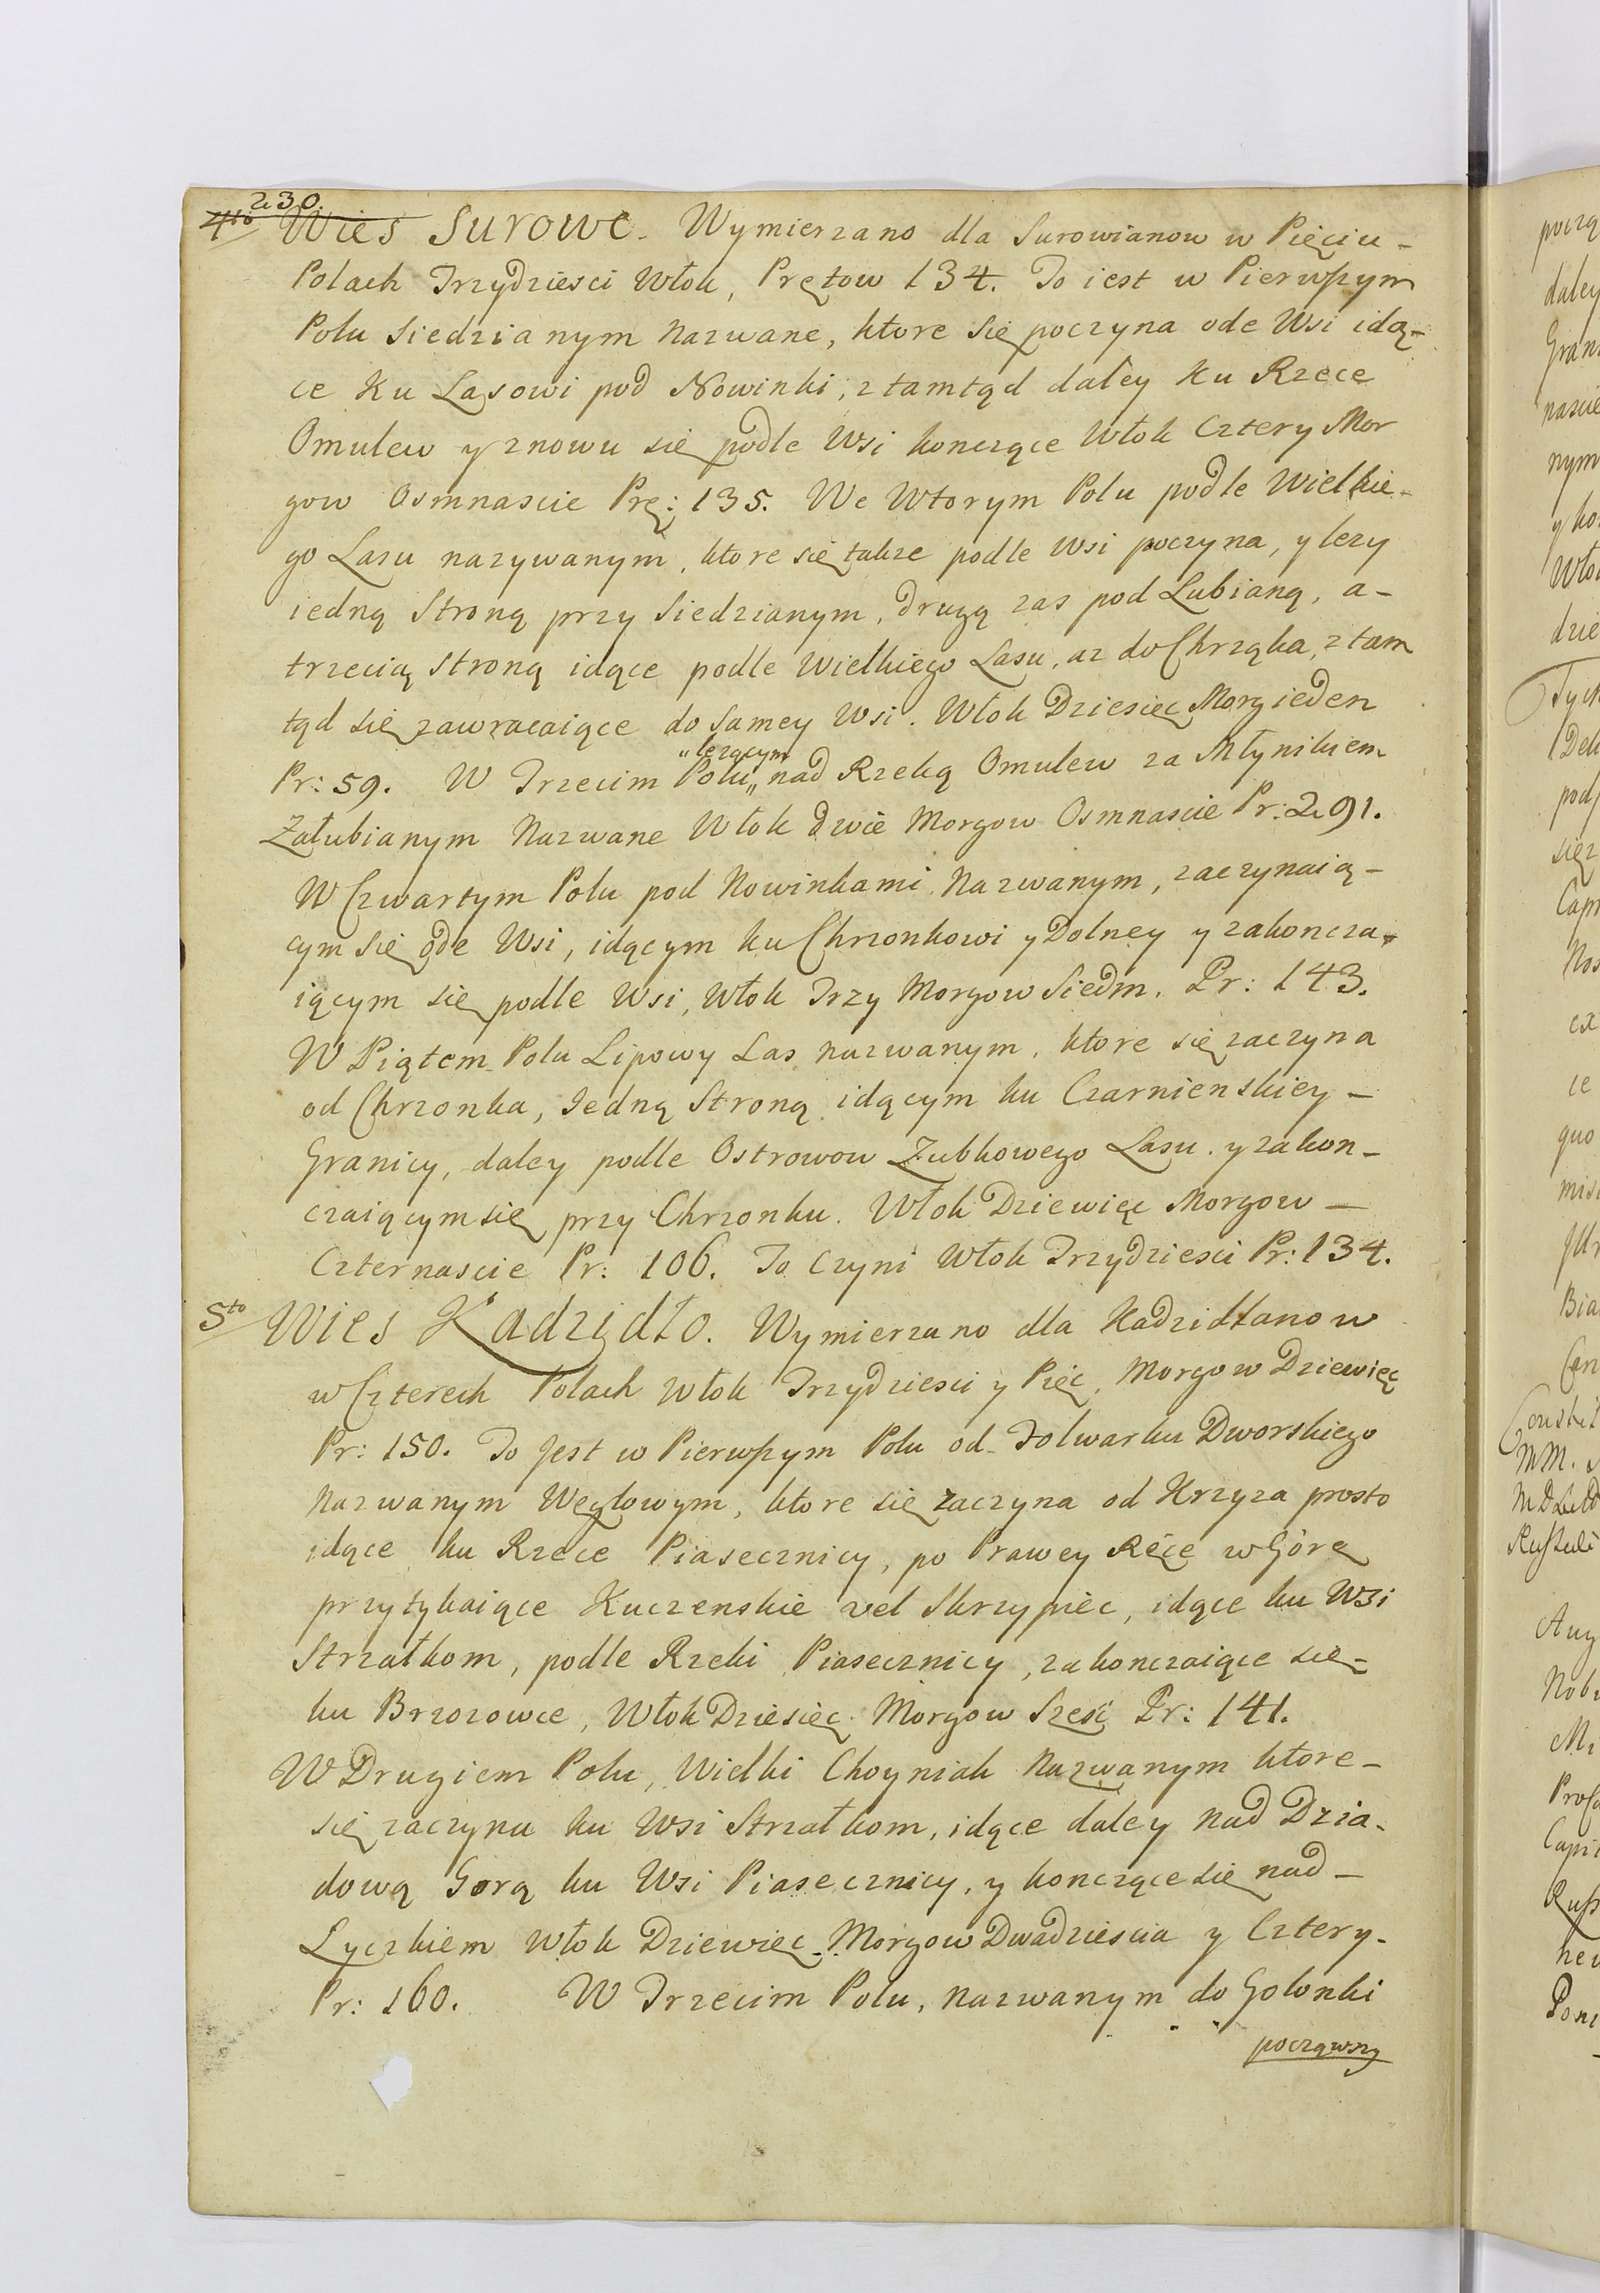 230.
4to Wies Surowe. Wymierzano dla Surowianow w Pięciu-
Polach Trzydziesci Włok, Prętow 134. To iest w Pierwszym
Polu Siedzianym Nazwane, ktore się poczyna ode Wsi idą-
ce Ku Lasowi pod Nowinki, z tamtąd daley Ku Rzece
Omulew y znowu się podle Wsi konczące Włok Cztery Mor
gow Osmnascie Prę: 135. We Wtorym Polu podle Wielkie-
go Lasu nazywanym, ktore się takze podle Wsi poczyna, y lezy
iedną Stroną przy Siedzianym, drugą zas pod Lubianą, a-
trzecią Stroną idące podle Wielkiego Lasu, az do Chrząka, z tam
tąd się zawracaiące do Samey Wsi. Włok Dziesięc Morg ieden
„lezącym
Pr: 59. W Trzecim Polu„ nad Rzeką Omulew za Młynikiem
Załubianym Nazwane Włok dwie Morgow Osmnascie Pr: 291.
W Czwartym Polu pod Nowinkami Nazwanym, zaczynaią-
cym się ode Wsi, idącym ku Chrzonkowi y Dolney y zakoncza-
iącym się podle Wsi, Włok Trzy Morgow Siedm. Pr: 143.
W Piątem Polu Lipowy Las nazwanym, ktore się zaczyna
od Chrzonka, Jedną Stroną idącym ku Czarnienskiey-
Granicy, daley podle Ostrowow Zubkowego Lasu. y zakon-
czaiącym się przy Chrzonku. Włok Dziewięc Morgow-
Czternascie Pr: 106. To Czyni Włok Trzydziesci Pr: 134.
5to Wies Kadzidło. Wymierzano dla Kadzidłanow
w Czterech Polach Włok Trzydziesci y Pięc, Morgow Dziewięc
Pr: 150. To Jest w Pierwszym Polu od Folwarku Dworskiego
Nazwanym Węglowym, ktore się zaczyna od Krzyza prosto
idące ku Rzece Piasecznicy, po Prawey Ręce w Górę
przytykaiące Kuczenskie vel Skrzypiec, idące ku Wsi
Strzałkom, podle Rzeki Piasecznicy, zakonczaiące się-
ku Brzozowce, Włok Dziesięc Morgow Szesc Pr: 141.
W Drugiem Polu, Wielki Choyniak Nazwanym ktore-
się zaczyna ku Wsi Strzałkom, idące daley nad Dzia-
dową Gorą ku Wsi Piasecznicy, y konczące się nad-
Lyczkiem Włok Dziewięc Morgow Dwadziescia y Cztery-
Pr: 160. W Trzecim Polu, nazwanym do Golonki
począwszy